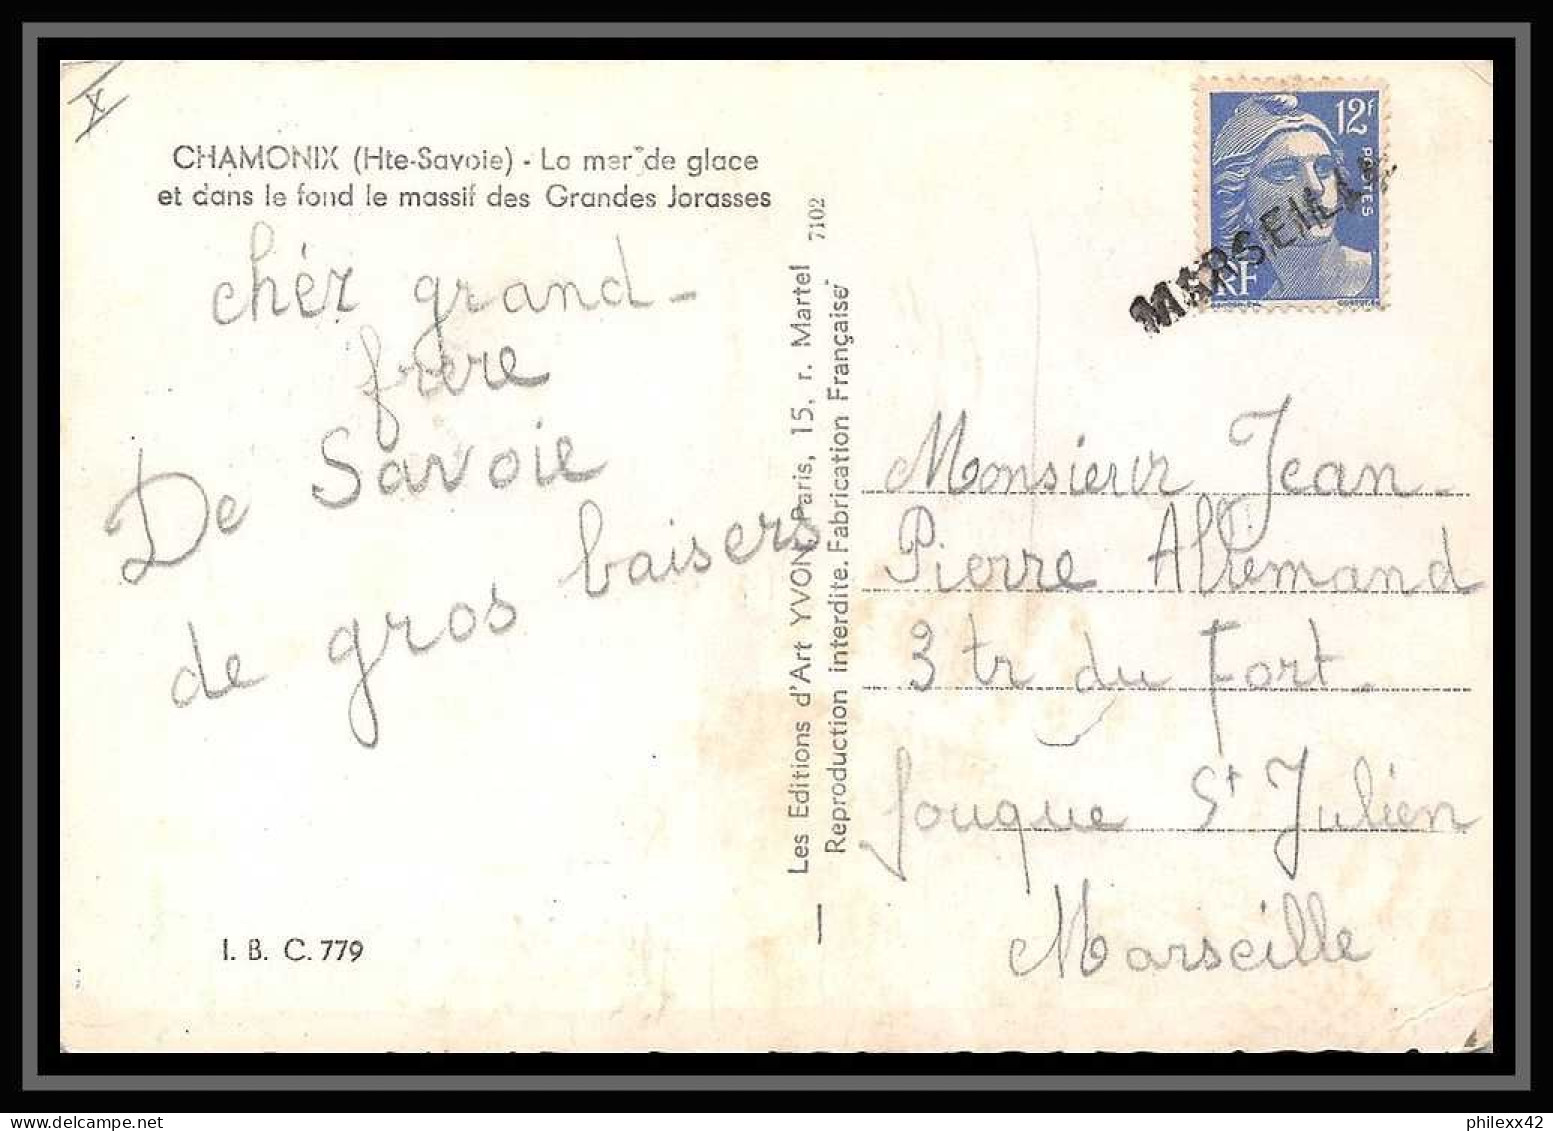 X
CHAMONIX (Hte-Savoie) - La mer de glace
et dans le fond le massif des Grandes Jorasses
chér grand-
frère
De Savoie
de gros baisers
I. B. C. 779
Les Editions d'Art YVON, Paris, 15, r. Martel
Reproduction interdite. Fabrication Française.
7102
12F
POSTES
RF
MARSEILLE
Monsieur Jean-
Pierre Allemand
3 tr du Fort
fouque St Julien
Marseille
delcampe.net
philexx42